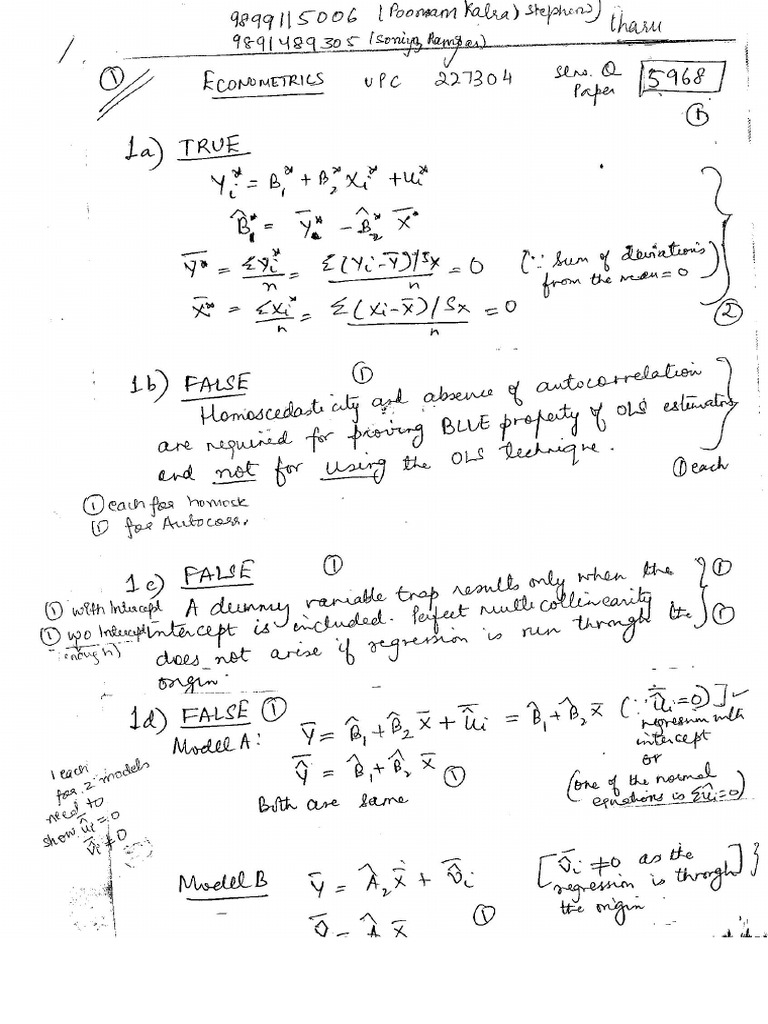 9899115006 (Poonam Kalra) Stephens)
9891489305 (Soniya Ramgar) tharu
① ECONOMETRICS UPC 227304 Sl.No. Q Paper 5968
①
1a) TRUE
Yi* = B1* + B2* Xi* + ui*
B̂1* = Ȳ* - B̂2* X̄*
Ȳ* = ΣYi*/n = Σ(Yi-Ȳ)/Sx / n = 0 (∵ Sum of deviations from the mean = 0)
X̄* = ΣXi*/n = Σ(Xi-X̄)/Sx / n = 0 ②
1b) FALSE ①
Homoscedasticity and absence of autocorrelation
are required for proving BLUE property of OLS estimators
and not for using the OLS technique.
① each
① each for homosk
① for Autocorr.
1c) FALSE ①
① with Intercept A dummy variable trap results only when the ①
① w/o Intercept intercept is included. Perfect multicollinearity
enough) does not arise if regression is run through the ①
origin.
1d) FALSE ①
Model A: Ȳ = B̂1 + B̂2 X̄ + ûi = B̂1 + B̂2 X̄ (∵ ûi = 0) ] ✓
regression with
intercept
or
Ŷ = B̂1 + B̂2 X̄ ①
(one of the normal
equations is Σûi = 0)
Both are same
1 each
for 2 models
need to
show ûi = 0
v̂i ≠ 0
Model B Ȳ = Â2 X̄ + v̂i [v̂i ≠ 0 as the
regression is through
the origin ]
①